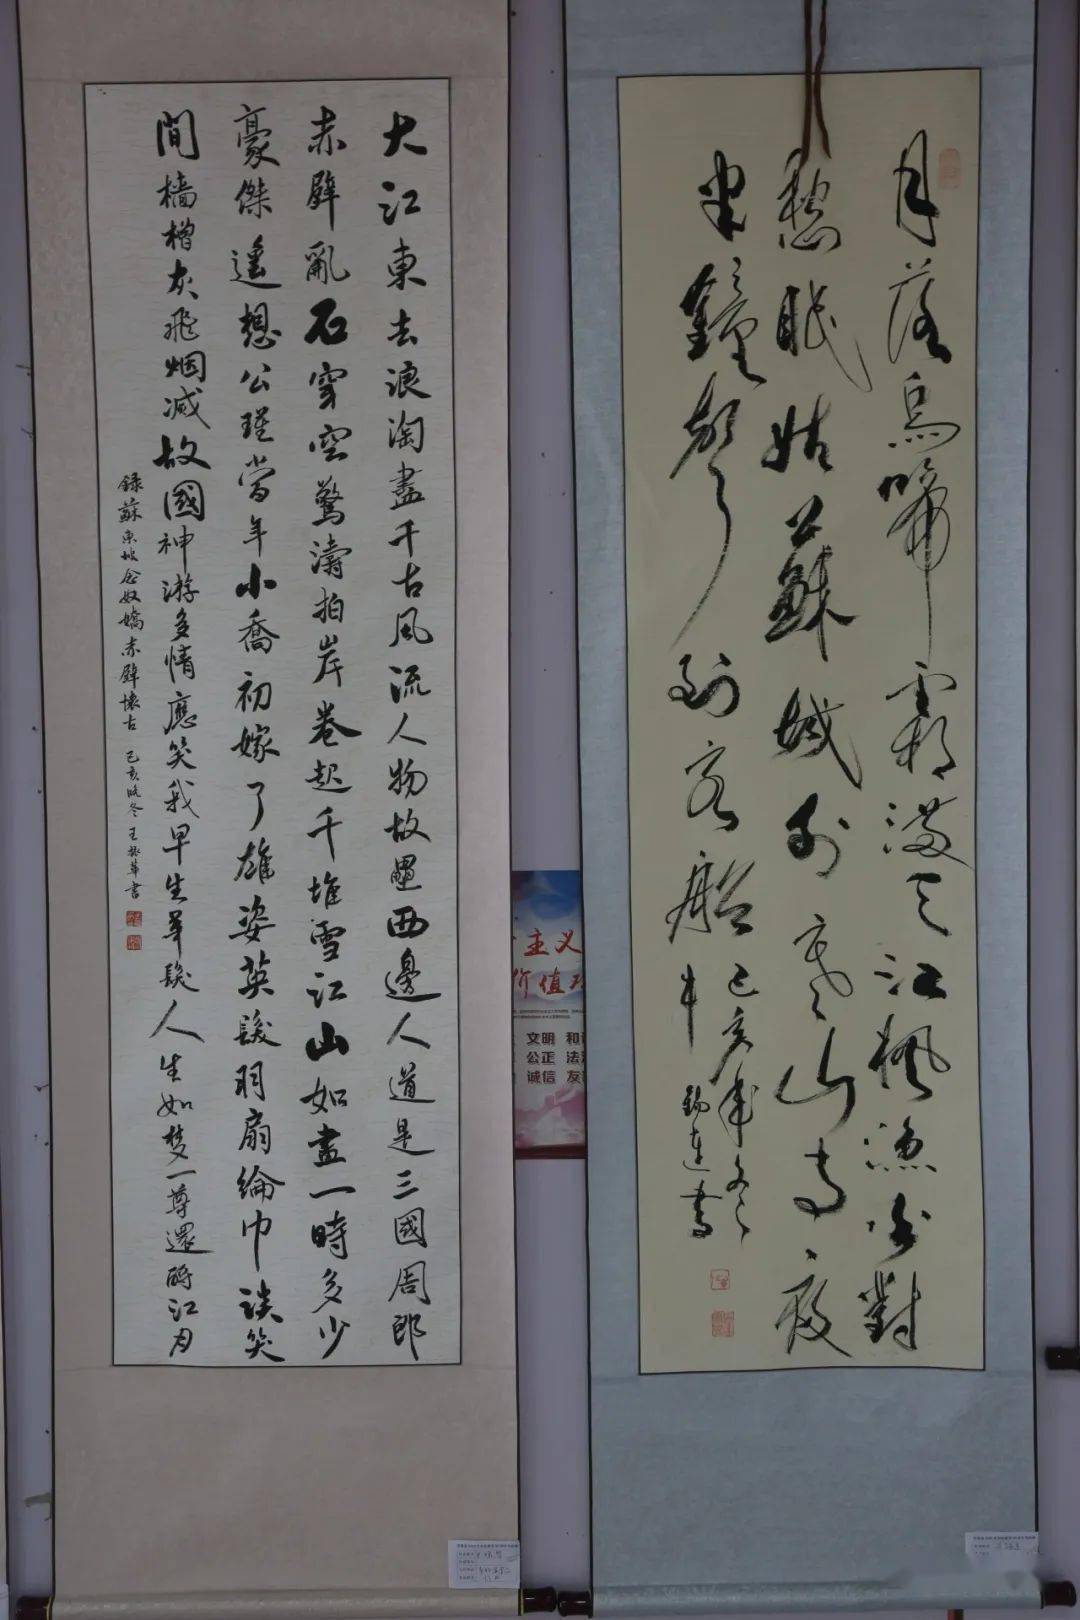 月落烏啼霜滿天江楓漁火對
愁眠姑蘇城外寒山寺夜
半鐘聲到客船
己亥年冬
牛錫連書
大江東去浪淘盡千古風流人物故壘西邊人道是三國周郎
赤壁亂石穿空驚濤拍岸卷起千堆雪江山如畫一時多少
豪傑遙想公瑾當年小喬初嫁了雄姿英髮羽扇綸巾談笑
間檣櫓灰飛烟滅故國神游多情應笑我早生華髮人生如夢一尊還酹江月
錄蘇東坡念奴嬌赤壁懷古 己亥晚冬 王振華書
主义
价值
文明 和
公正 法
诚信 友